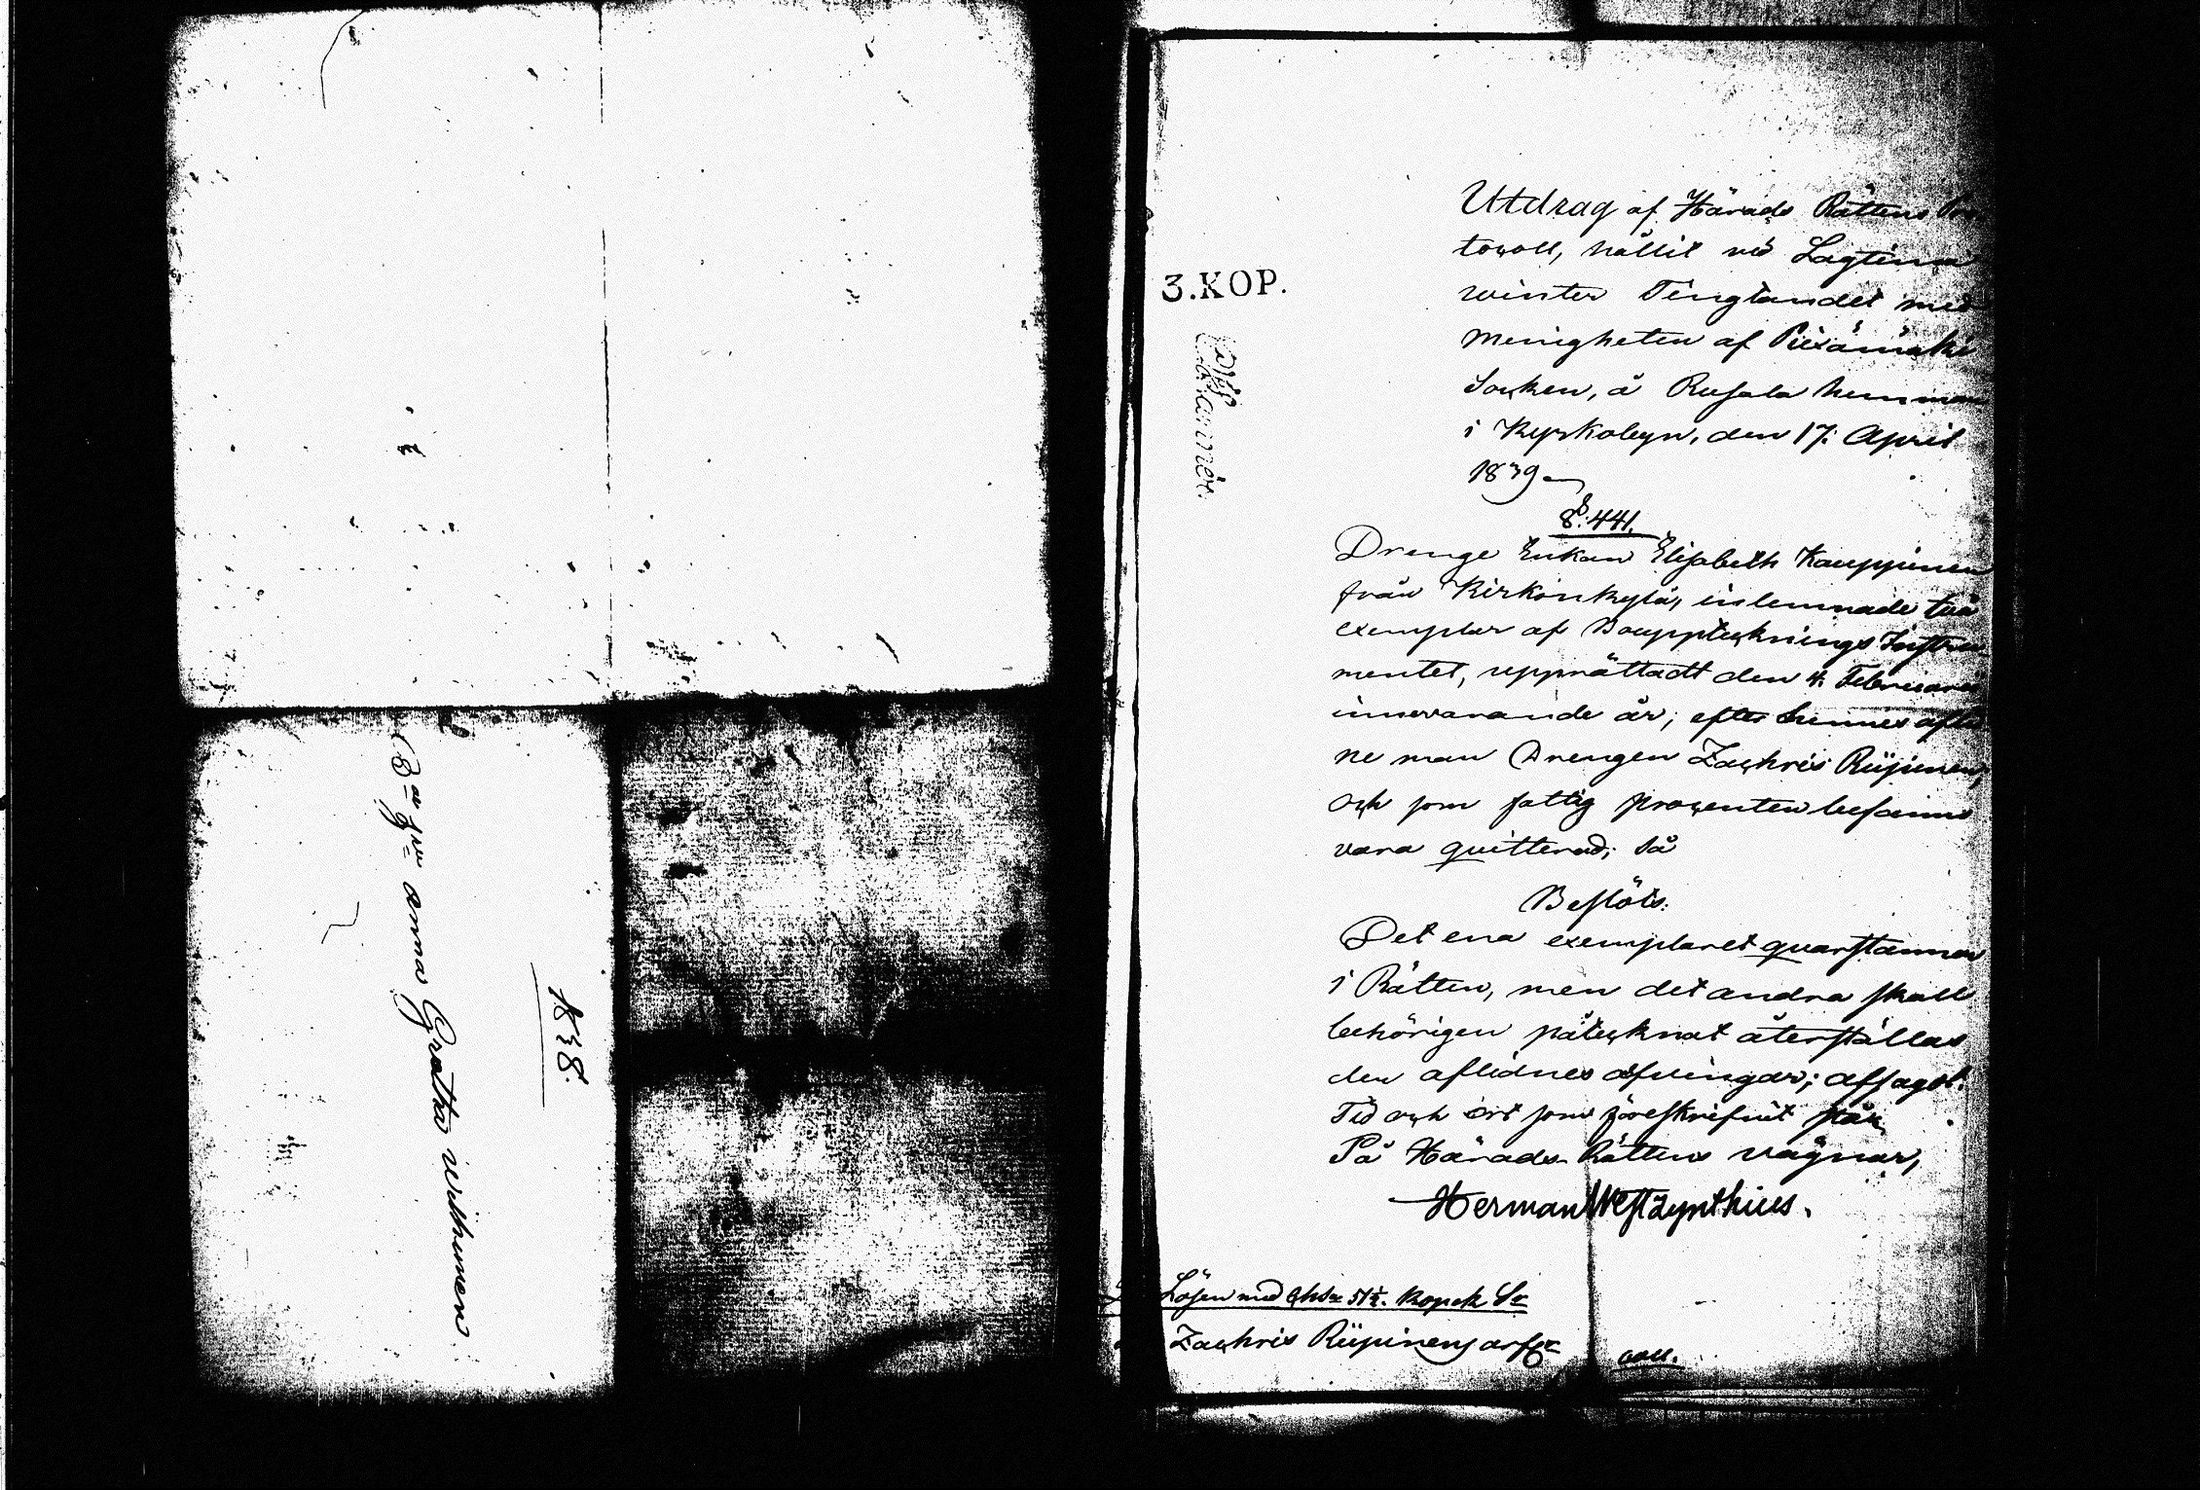 Bägge Anna Gretha Wirhunen
1838.
3.KOP.
Charta Sig.
Utdrag af Härads Rättens Pro
tocoll, hållit vid Lagtima
winter Tinget med
Menigheten af Pieksämäki
Socken, å Rusala hemman
i Kyrkobyn, den 17. April
1839
§: 441.
Drenge Enkan Elisabeth Kauppinen
från Kirkonkylä, inlemnade två
exemplar af Boupptecknings Instru
mentet, upprättadt den 4. Februarii
innevarande år, efter hennes aflid
ne man Drengen Zachris Riipinen,
och som fattig procenten befanns
vara quitterad; Så
Beslöts:
Det ena exemplaret quarstannar
i Rätten, men det andra skall
behörigen påtecknat återställas
den aflidnes arfvingar; afsagdt.
Tid och ort som föreskrifvit står
På Härads Rättens vägnar,
Herman Westzynthius.
Lösen med Chta 51½. Kopek Sr
Zachris Riipinens arfge
coll.